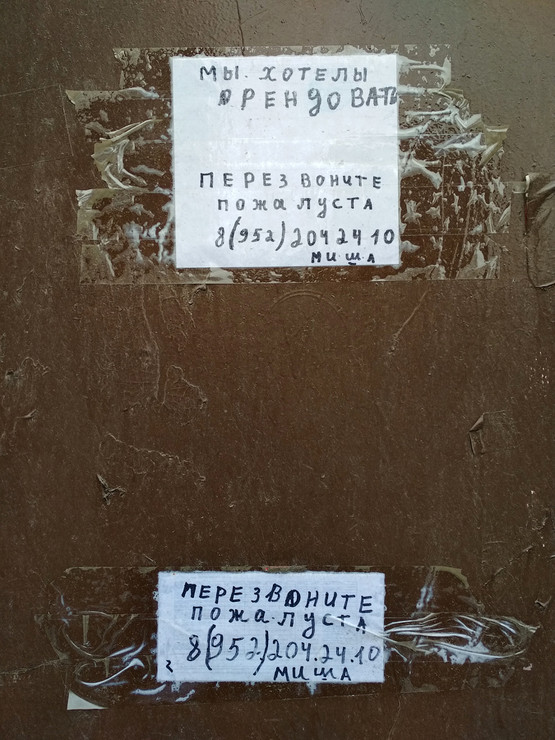 МЫ. ХОТЕЛЫ
АРЕНДОВАТЬ
ПЕРЕЗВОНИТЕ
ПОЖАЛУСТА
8(952)2042410
МИША
ПЕРЕЗВОНИТЕ
ПОЖАЛУСТА
8(952)204.24.10
МИША